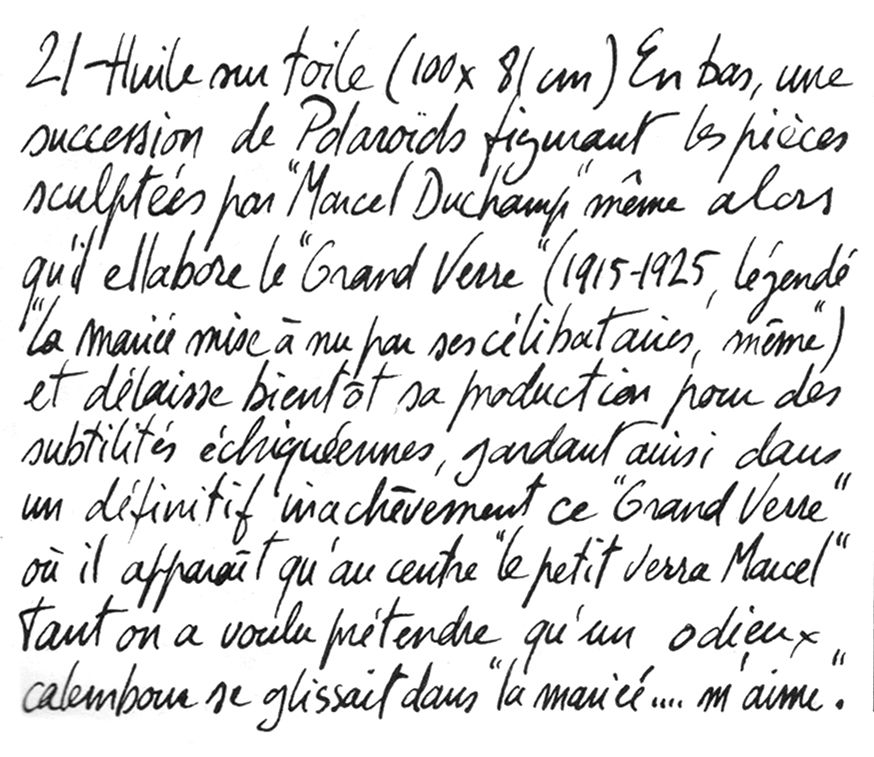 21 - Huile sur toile (100 x 81 cm) En bas, une
succession de Polaroïds figurant les pièces
sculptées par "Marcel Duchamp" même alors
qu'il ellabore le "Grand Verre" (1915-1925, légendé
"la mariée mise à nu par ses célibataires, même")
et délaisse bientôt sa production pour des
subtilités échiquéennes, gardant ainsi dans
un définitif inachèvement ce "Grand Verre"
où il apparaît qu'au centre "le petit verra Marcel"
tant on a voulu prétendre qu'un odieux
calembour se glissait dans "la mariée.... m'aime".